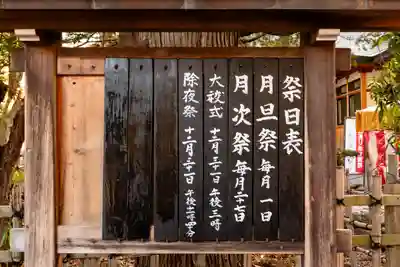 祭日表
月旦祭 毎月一日
月次祭 毎月二十七日
大祓式 十二月三十一日 午後三時
除夜祭 十二月三十一日